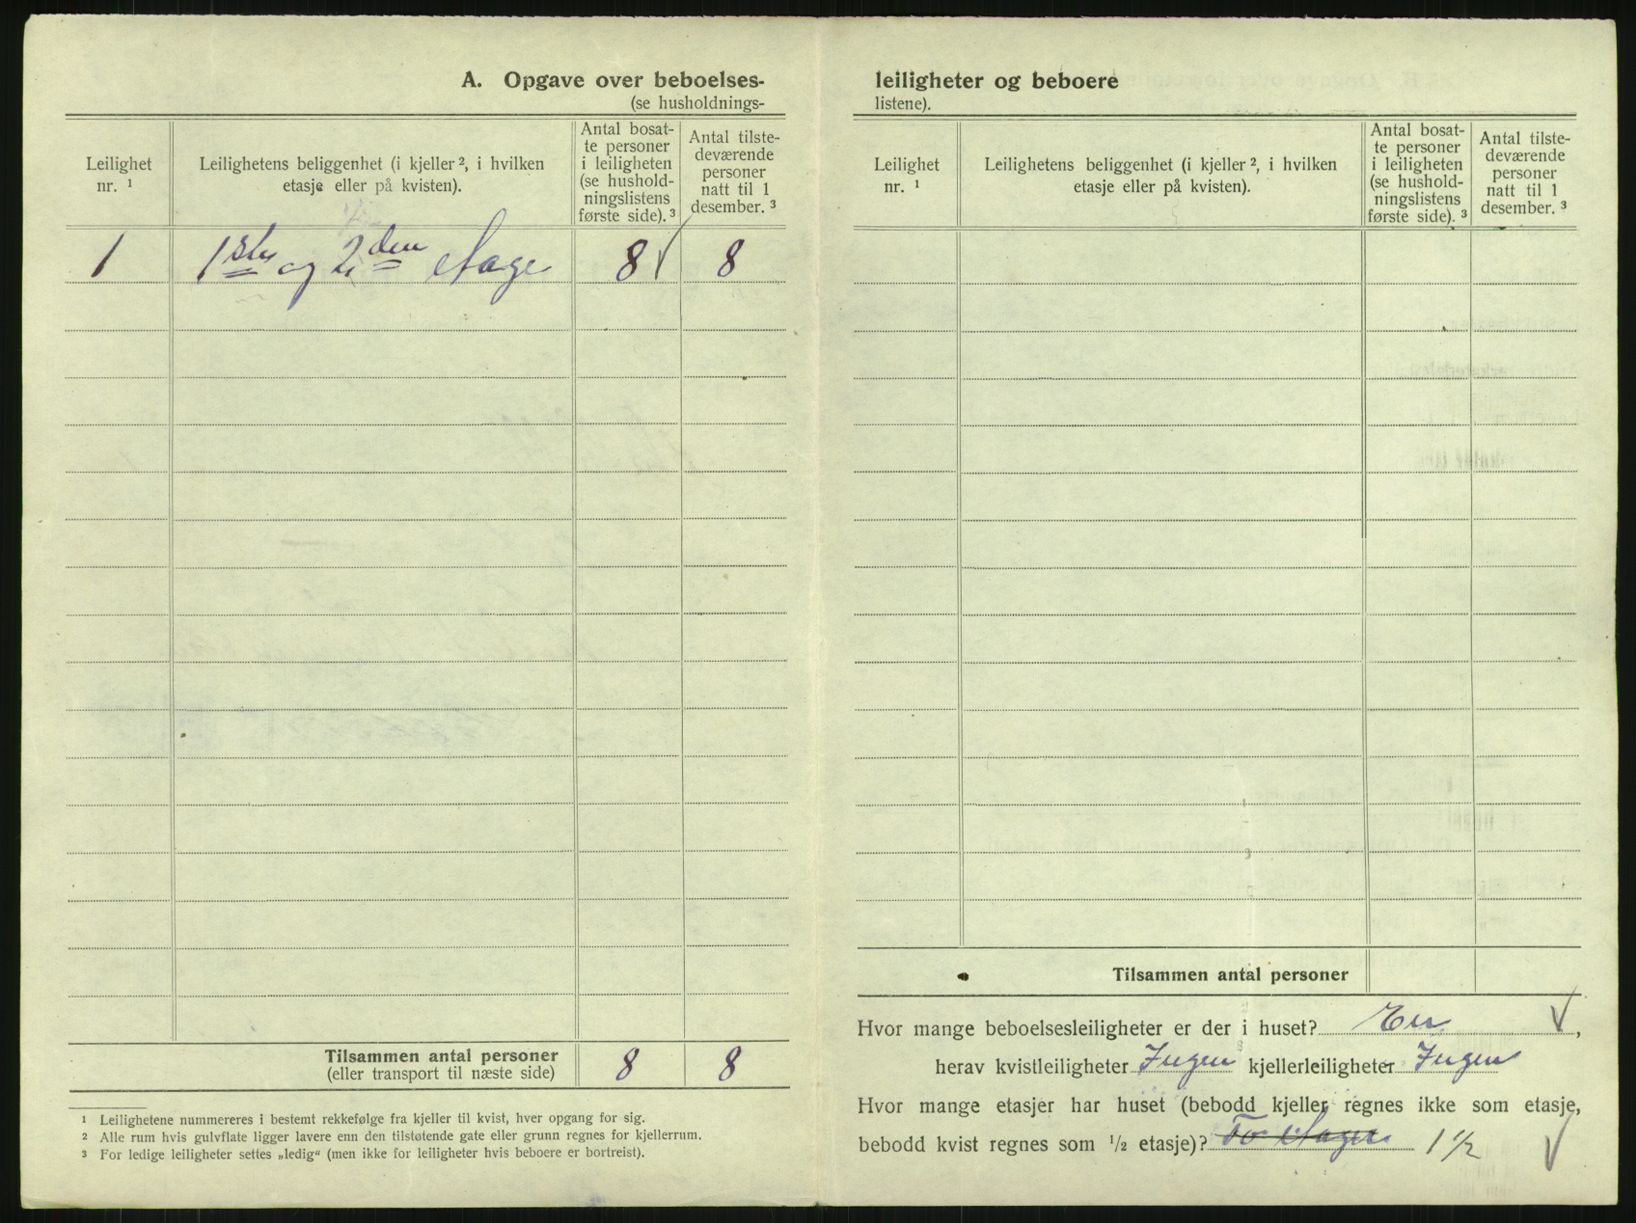 A. Opgave over beboelses-
(se husholdnings-
Leilighet
nr. 1
Leilighetens beliggenhet (i kjeller 2, i hvilken
etasje eller på kvisten).
Antal bosat-
te personer
i leiligheten
(se hushold-
ningslistens
første side). 3
Antal tilste-
deværende
personer
natt til 1
desember. 3
1 1ste og 2den etage 8 8
Tilsammen antal personer 8 8
(eller transport til næste side)
1 Leilighetene nummereres i bestemt rekkefølge fra kjeller til kvist, hver opgang for sig.
2 Alle rum hvis gulvflate ligger lavere enn den tilstøtende gate eller grunn regnes for kjellerrum.
3 For ledige leiligheter settes „ledig“ (men ikke for leiligheter hvis beboere er bortreist).
leiligheter og beboere
listene).
Leilighet
nr. 1
Leilighetens beliggenhet (i kjeller 2, i hvilken
etasje eller på kvisten).
Antal bosat-
te personer
i leiligheten
(se hushold-
ningslistens
første side). 3
Antal tilste-
deværende
personer
natt til 1
desember. 3
Tilsammen antal personer
Hvor mange beboelsesleiligheter er der i huset? En ,
herav kvistleiligheter Ingen kjellerleiligheter Ingen
Hvor mange etasjer har huset (bebodd kjeller regnes ikke som etasje,
bebodd kvist regnes som 1/2 etasje)? To Etager 1 1/2